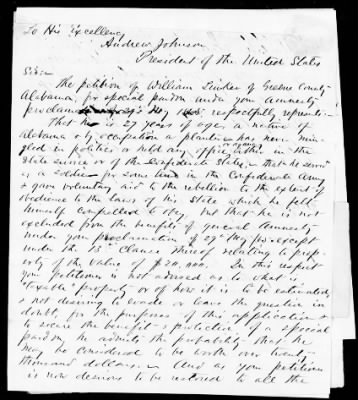 To His Excellency
Andrew Johnson
President of the United States
Sir:
The petition of William of Greene County
Alabama, for special pardon under your Amnesty
proclamation May 1865, respectfully represents
That he is 27 years of age, a native of
Alabama & by occupation a planter, has never min
gled in politics or held any office either in the
State service or of the Confederate States, that he served
as a soldier for some time in the Confederate Army
& gave voluntary aid to the rebellion to the extent of
obedience to the laws of his State which he felt
himself compelled to obey, but that he is not
excluded from the benefits of general Amnesty
under your proclamation of 29th May fox except
under the 13th Clause thereof relating to prop-
erty of the value of $20,000. In this respect
your petitioner is not advised as to what is
"taxable" property or of how it is to be estimated,
& not desiring to evade or leave the question in
doubt, for the purposes of this application &
to secure the benefit & protection of a special
pardon, he admits the probability that he
may be considered to be worth over twenty
thousand dollars. And as your petitioner
is now desirous to be restored to all the